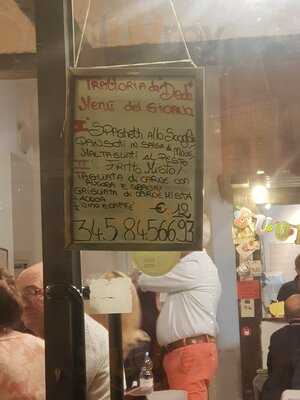 TRATTORIA da "Dedè"
Menù del Giorno
I SPAGHETTI allo Scoglio
PANSOTI in SALSA di NOCI
MALTAGLIATI al PESTO
II FRITTO MISTO/
TAGLIATA di CARNE con
RUCOLA E GRANA/
GRIGLIATA di CARNE MISTA
ACQUA
VINO E CAFFÈ € 12
345 8456693